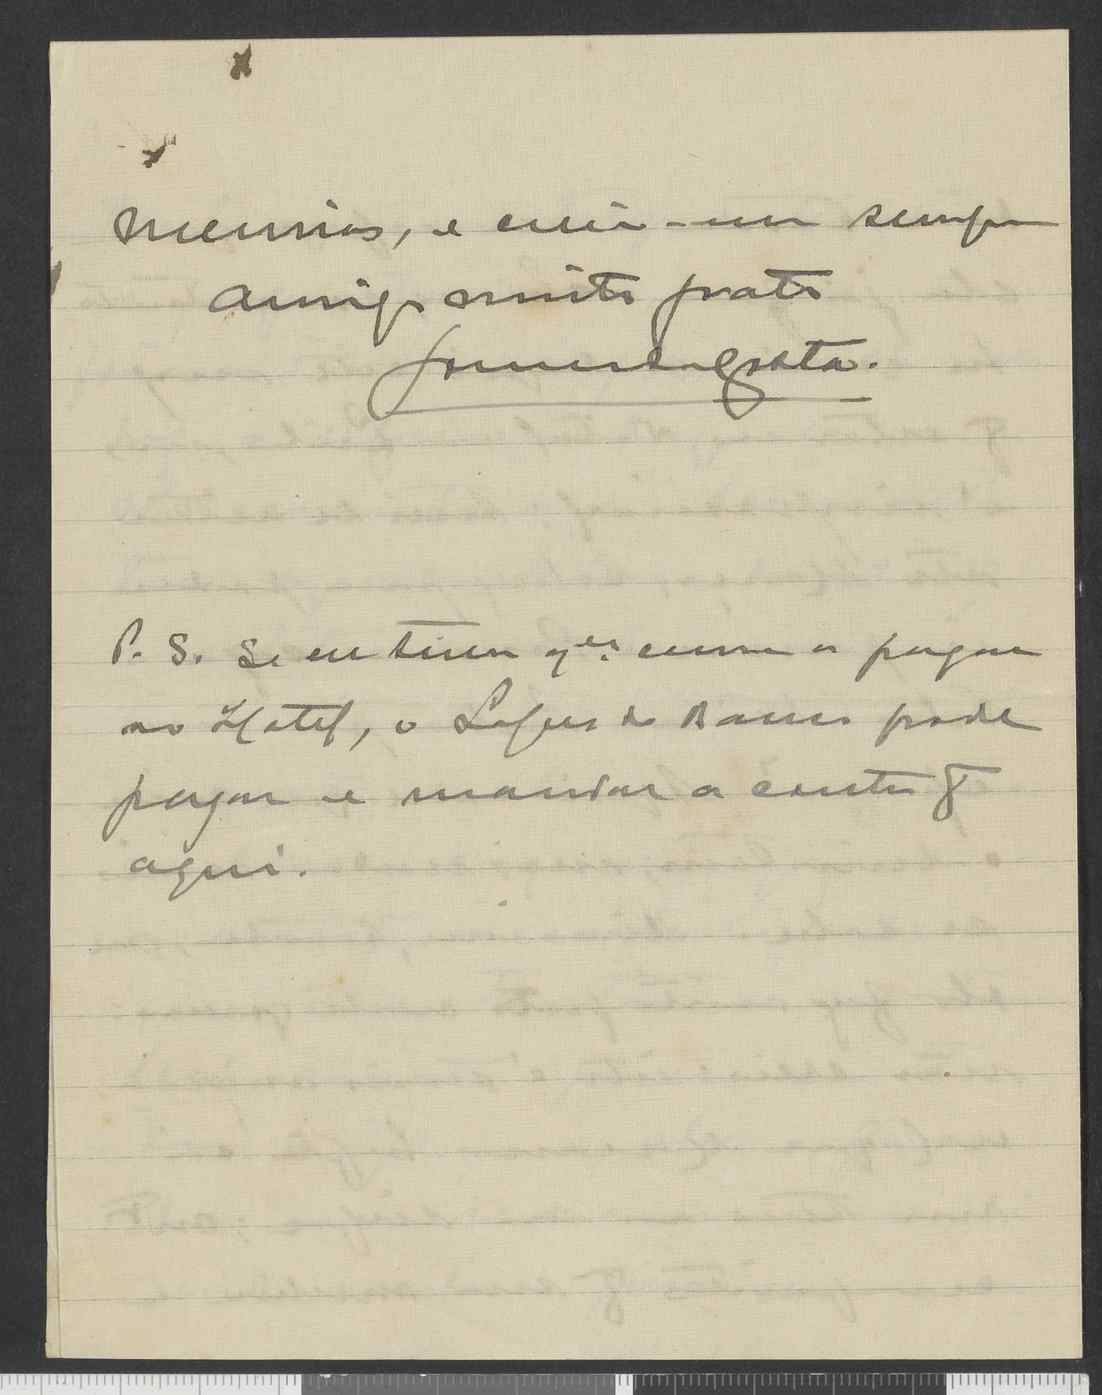 meninos, e creia-me sempre
amigo muito grato
Gomes da Costa.
P. S. Se eu tiver qer. cousa a pagar
no Hotel, o Lopes do Banco pode
pagar e mandar a conta p
aqui.